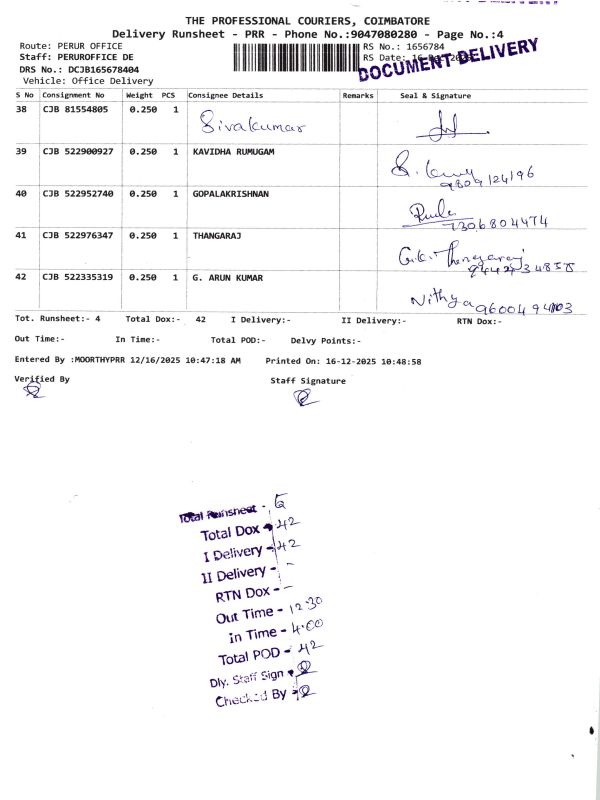 THE PROFESSIONAL COURIERS, COIMBATORE
Delivery Runsheet - PRR - Phone No.:9047080280 - Page No.:4
Route: PERUR OFFICE
RS No.: 1656784
Staff: PERUROFFICE DE
RS Date: 16-Dec-2025
DOCUMENT DELIVERY
DRS No.: DCJB165678404
Vehicle: Office Delivery
S No Consignment No Weight PCS Consignee Details Remarks Seal & Signature
38 CJB 81554805 0.250 1 Sivakumar
39 CJB 522900927 0.250 1 KAVIDHA RUMUGAM
9809124196
40 CJB 522952740 0.250 1 GOPALAKRISHNAN
7306804474
41 CJB 522976347 0.250 1 THANGARAJ
G.K. Thangaraj
42 CJB 522335319 0.250 1 G. ARUN KUMAR
Nithya
Tot. Runsheet:- 4 Total Dox:- 42 I Delivery:- II Delivery:- RTN Dox:-
Out Time:- In Time:- Total POD:- Delvy Points:-
Entered By :MOORTHYPRR 12/16/2025 10:47:18 AM Printed On: 16-12-2025 10:48:58
Verified By Staff Signature
Total Runsheet -
Total Dox - 42
I Delivery - 42
II Delivery - -
RTN Dox - -
Out Time - 12.30
In Time - 4.00
Total POD - 42
Dly. Staff Sign -
Checked By -